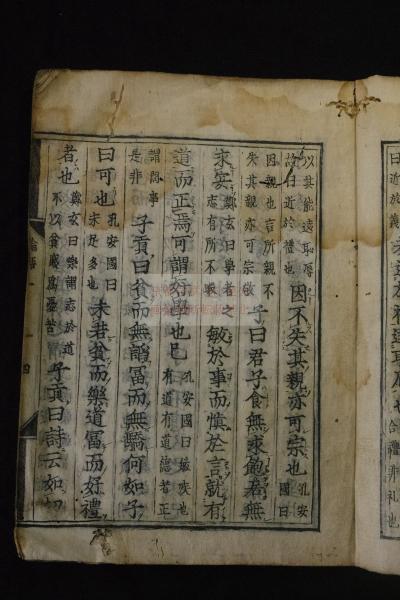 以其能遠恥辱故曰近於禮也因不失其親亦可宗也孔安國曰
因親也言所親不失其親亦可宗敬子曰君子食無求飽居無
求安鄭玄曰學者之志有所不暇敏於事而慎於言就有
道而正焉可謂好學也已孔安國曰敏疾也有道有道德者正
謂問事是非子貢曰貧而無諂冨而無驕何如子
曰可也孔安國曰未足多也未若貧而樂道冨而好禮
者也鄭玄曰樂謂志於道不以貧賤爲憂苦子貢曰詩云如切
論語一 四